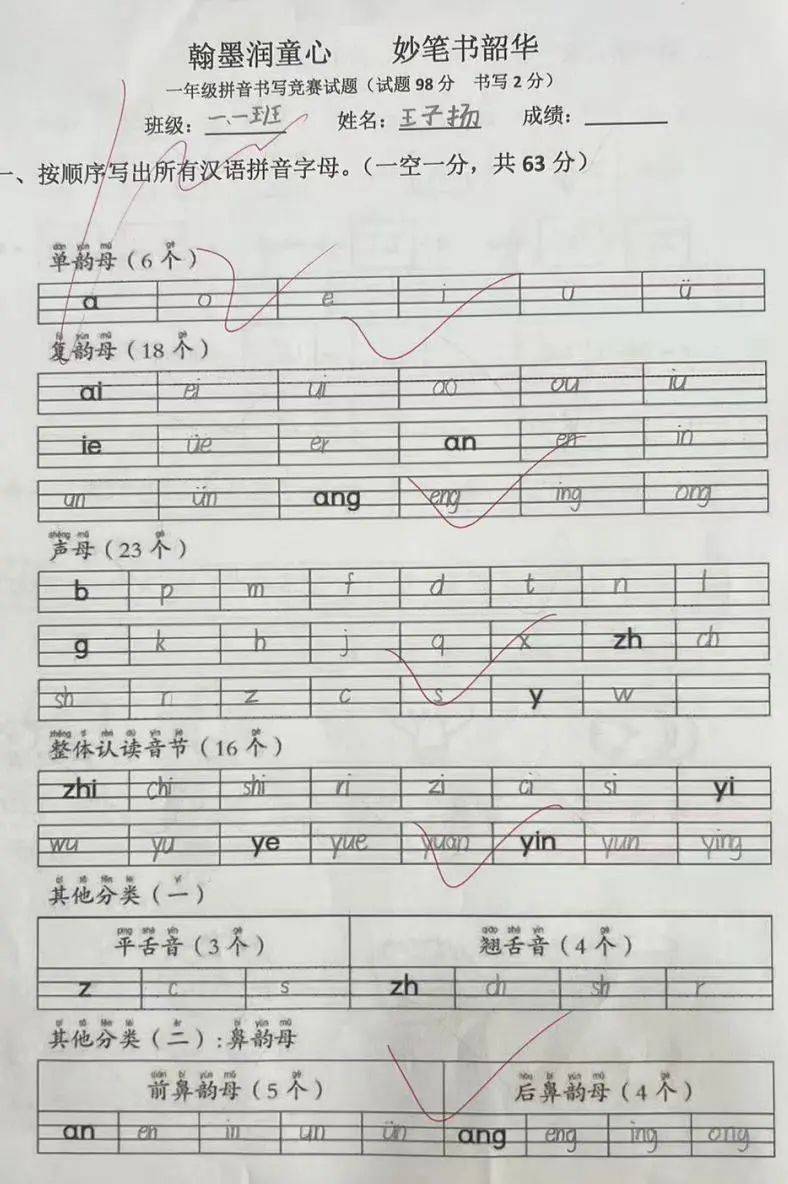 翰墨润童心 妙笔书韶华
一年级拼音书写竞赛试题（试题 98 分 书写 2 分）
班级：一、一班 姓名：王子扬 成绩：
一、按顺序写出所有汉语拼音字母。（一空一分，共 63 分）
dān yùn mǔ gè
单韵母（6 个）
a o e i u ü
fù yùn mǔ gè
复韵母（18 个）
ai ei ui ao ou iu
ie üe er an en in
un ün ang eng ing ong
shēng mǔ gè
声母（23 个）
b p m f d t n l
g k h j q x zh ch
sh r z c s y w
zhěng tǐ rèn dú yīn jié gè
整体认读音节（16 个）
zhi chi shi ri zi ci si yi
wu yu ye yue yuan yin yun ying
qí tā fēn lèi yī
其他分类（一）
píng shé yīn gè qiào shé yīn gè
平舌音（3 个） 翘舌音（4 个）
z c s zh ch sh r
qí tā fēn lèi èr bí yùn mǔ
其他分类（二）：鼻韵母
qián bí yùn mǔ gè hòu bí yùn mǔ gè
前鼻韵母（5 个） 后鼻韵母（4 个）
an en in un ün ang eng ing ong